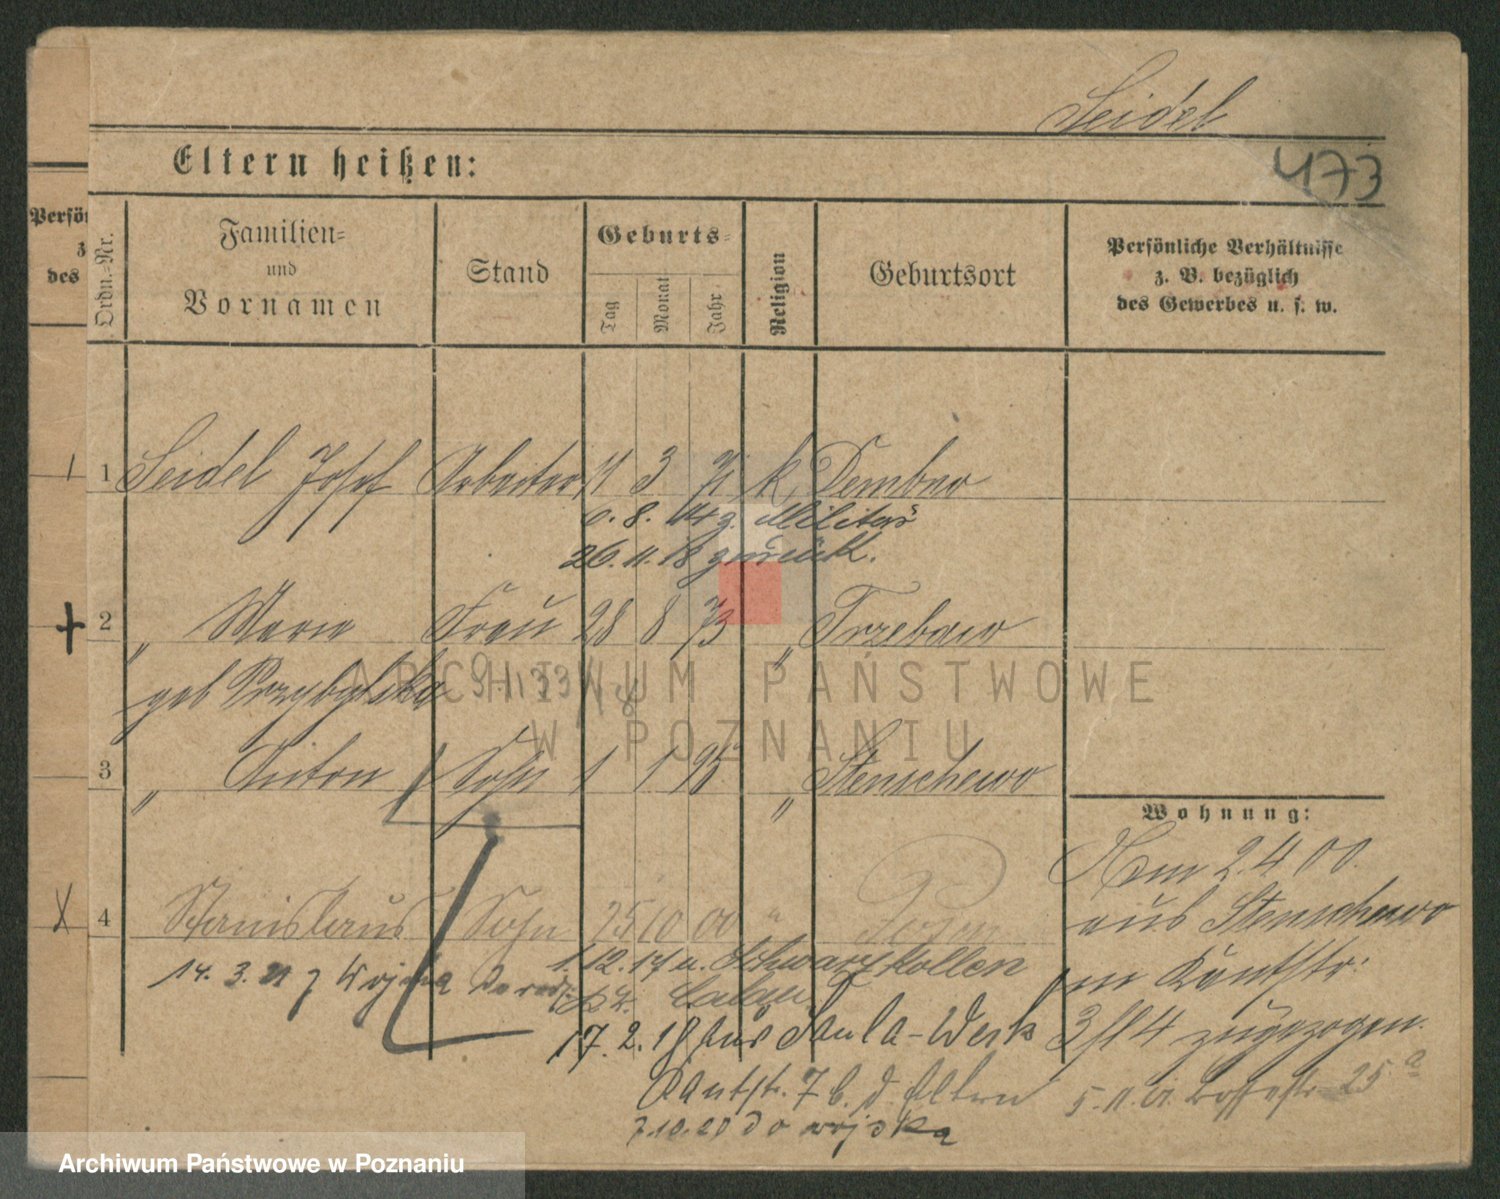 Seidel
473
Eltern heißen:
Persön
z
des
Ordn.-Nr.
Familien-
und
Vornamen
Stand
Geburts-
Tag
Monat
Jahr
Religion
Geburtsort
Persönliche Verhältnisse
z. B. bezüglich
des Gewerbes u. s. w.
1 Seidel Josef Arbeiter 11 3 71 k. Dembno
6. 8. 14 z. Militär
26. 11. 18 zurück.
2 " Marie Frau 28 8 73 " Trzebaw
geb Przybylska
3 " Anton Sohn 1 1 95 " Stenschewo
Wohnung:
Am 2.4 00.
aus Stenschewo
4 Stanislaus Sohn 25 10 00 " Posen
1. 12. 17 n. Schwarzkollen
14. 3. 21 z Wojska
17. 2. 18 aus Paula-Werk
Kantstr. 7 b. d. Eltern
7.10.20 do wojska
in Kantstr.
3/4 zugezogen.
ARCHIWUM PAŃSTWOWE
W POZNANIU
Archiwum Państwowe w Poznaniu